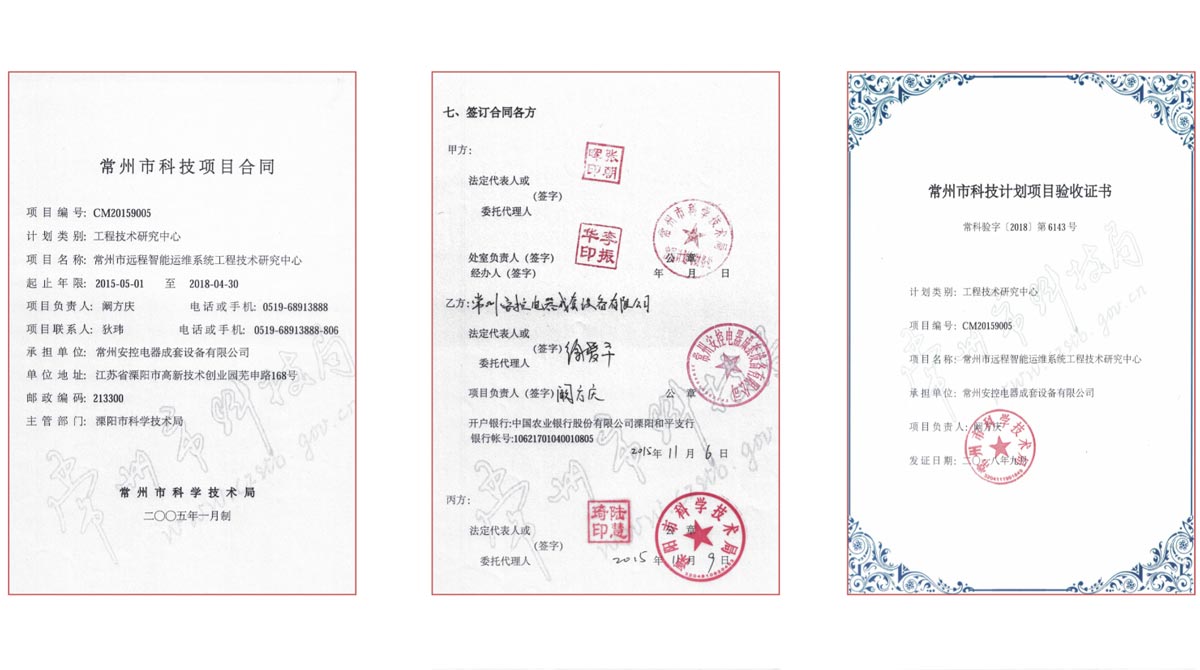 常州市科技项目合同
项目编号: CM20159005
计划类别: 工程技术研究中心
项目名称: 常州市远程智能运维系统工程技术研究中心
起止年限: 2015-05-01 至 2018-04-30
项目负责人: 阚方庆 电话或手机: 0519-68913888
项目联系人: 狄玮 电话或手机: 0519-68913888-806
承担单位: 常州安控电器成套设备有限公司
单位地址: 江苏省溧阳市高新技术创业园芜申路168号
邮政编码: 213300
主管部门: 溧阳市科学技术局
常州市科学技术局
二〇〇五年一月制
七、签订合同各方
甲方:
张朝晖印
法定代表人或
(签字)
委托代理人
李振华印
常州市科学技术局
处室负责人(签字) 公 章
经办人(签字) 年 月 日
乙方: 常州安控电器成套设备有限公司
法定代表人或
(签字) 徐爱平
委托代理人
常州安控电器成套设备有限公司
项目负责人(签字) 阚方庆 公 章
开户银行:中国农业银行股份有限公司溧阳和平支行
银行帐号:10621701040010805
2015年 11 月 6 日
丙方:
陆慧琦印
溧阳市科学技术局
法定代表人或 公 章
(签字)
委托代理人 2015 年 11月 9 日
常州市科技计划项目验收证书
常科验字〔2018〕第 6143 号
计划类别: 工程技术研究中心
项目编号: CM20159005
项目名称: 常州市远程智能运维系统工程技术研究中心
承担单位: 常州安控电器成套设备有限公司
项目负责人: 阚方庆
发证日期: 二〇一八年九月
常州市科学技术局